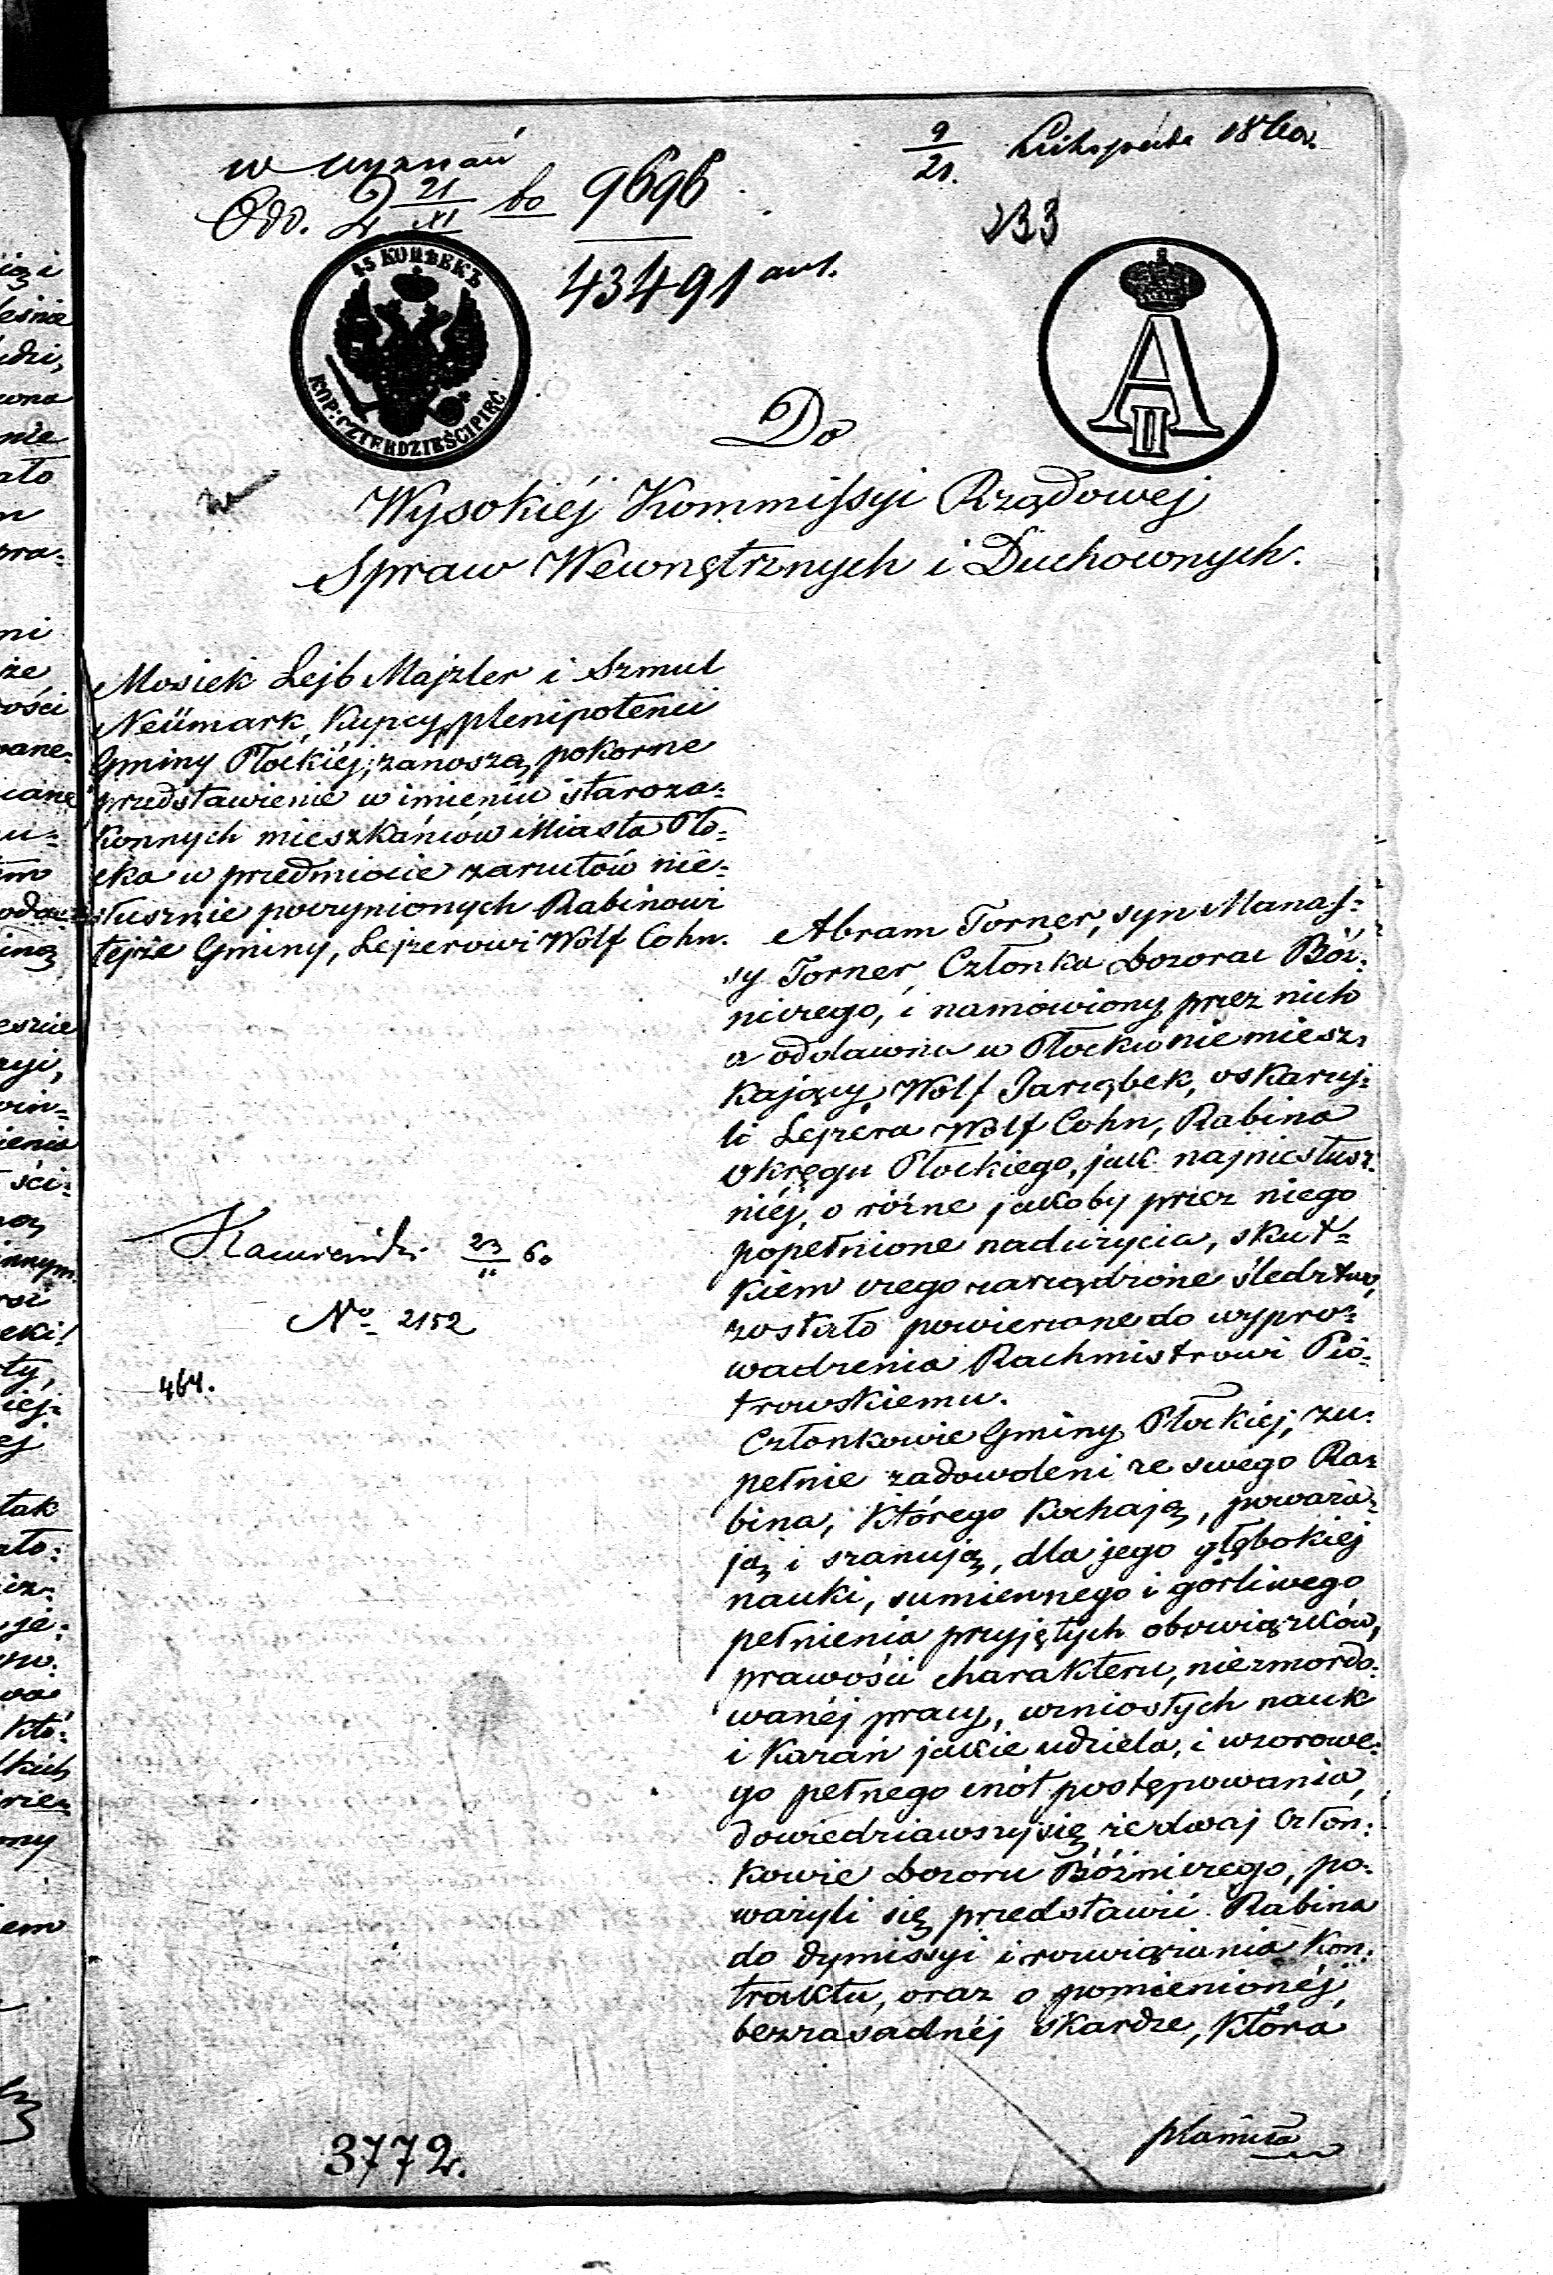 9/21. Listopada 1860r.
w wyznań
Odd. 2 21/XI 60 9696
43491 ant.
233
45 КОПѢЕКЪ
KOP: CZTERDZIEŚCI PIĘĆ
A II
Do
Wysokiéj Kommissyi Rządowej
Spraw Wewnętrznych i Duchownych.
Mosiek Lejb Majzler i Szmul
Neümark, Kupcy, plenipotenci
Gminy Płockiéj, zanoszą pokorne
przedstawienie w imieniu staroza=
konnych mieszkańców Miasta Pło=
cka w przedmiocie zarzutów nie=
słusznie poczynionych Rabinowi
tejże Gminy, Lejzerowi Wolf Cohn.
Abram Torner, syn Manas=
sy Torner, Członka Dozoru Bóż=
niczego, i namówiony przez nich
a oddawna w Płocku niemiesz=
kający Wolf Jarząbek, oskarży=
li Lejzera Wolf Cohn, Rabina
okręgu Płockiego, jak najniesłusz=
niéj, o różne jakoby przez niego
popełnione nadużycia, skut=
kiem czego zarządzone śledztwo,
zostało powierzone do wypro=
wadzenia Rachmistrzowi Pio=
trowskiemu.
Członkowie Gminy Płockiej, zu=
pełnie zadowoleni ze swego Ra=
bina, którego kochają, poważa=
ją i szanują, dla jego głębokiej
nauki, sumiennego i górliwego
pełnienia przyjętych obowiązków,
prawości charakteru, niezmordo=
wanéj pracy, wzniosłych nauk
i kazań jakie udziela, i wzorowe=
go pełnego cnót postępowania,
dowiedziawszy się że dwaj Człon=
kowie Dozoru Bóżniczego, po=
ważyli się przedstawić Rabina
do dymissyi i rozwiązania kon=
traktu, oraz o pomienionéj,
bezzasadnéj skardze, która
plamiła
23/11 60
No 2152
464.
3772.